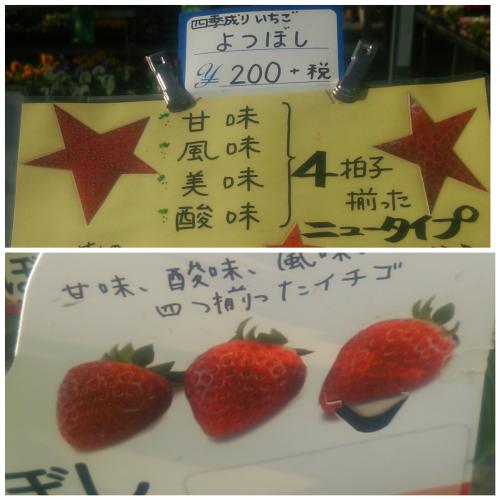 四季成りいちご
よつぼし
¥200+税
甘味
風味
美味
酸味
4拍子
揃った
ニュータイプ
甘味、酸味、風味、
四つ揃ったイチゴ
ぼし